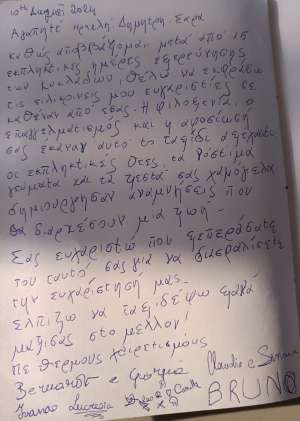 10th August 2024
Αγαπητέ Δημήτρη, Σαρα
καθώς αποβιβάζομαι μετά από 15
εκπληκτικές ημέρες εξερεύνησης
των Κυκλάδων, θέλω να εκφράσω
τις ειλικρινείς μου ευχαριστίες σε
καθέναν από εσάς. Η φιλοξενία, ο
επαγγελματισμός και η αφοσίωσή
σας έκαναν αυτό το ταξίδι αξέχαστο
οι εκπληκτικές θέες, τα νόστιμα
γεύματα και τα ζεστά σας χαμόγελα
δημιούργησαν αναμνήσεις που
θα διαρκέσουν μια ζωή.
Σας ευχαριστώ που ξεπεράσατε
τον εαυτό σας για να διασφαλίσετε
την ευχαρίστησή μας.
Ελπίζω να ταξιδέψω ξανά
μαζί σας στο μέλλον!
Με θερμούς χαιρετισμούς
Bernardo e Giorgia Claudio e
Lucrezia BRUNO